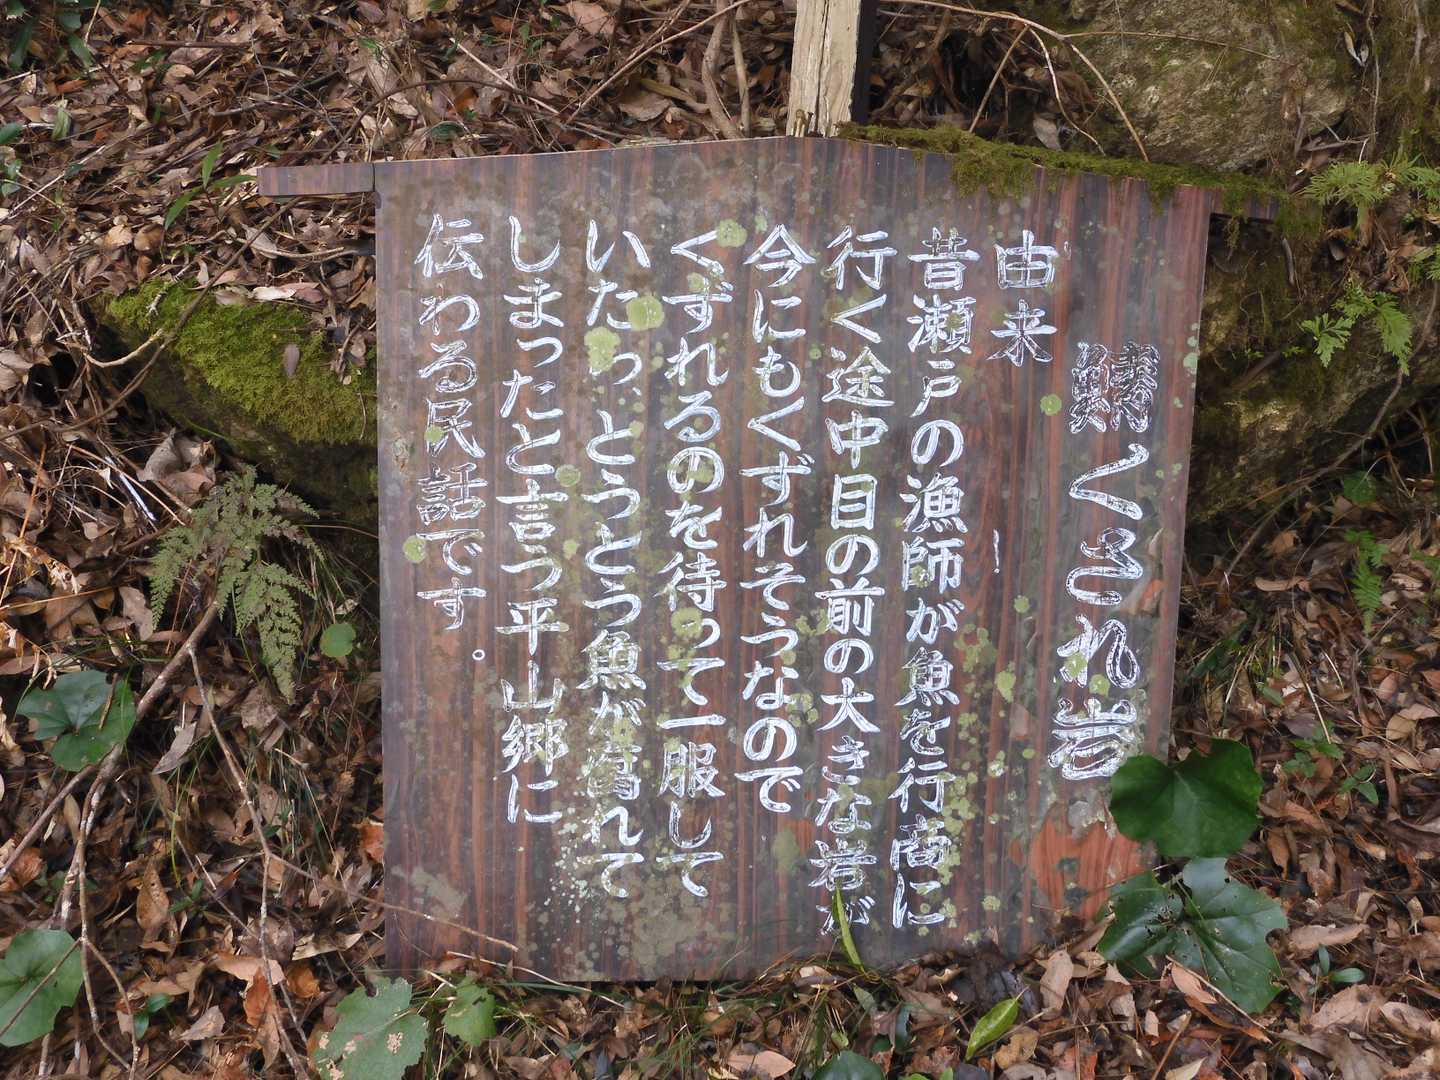 くされ岩
由来
昔瀬戸の漁師が魚を行商に
行く途中目の前の大きな岩が
今にもくずれそうなので
くずれるのを待って一服して
いたら、とうとう魚が腐れて
しまったと言う平山郷に
伝わる民話です。